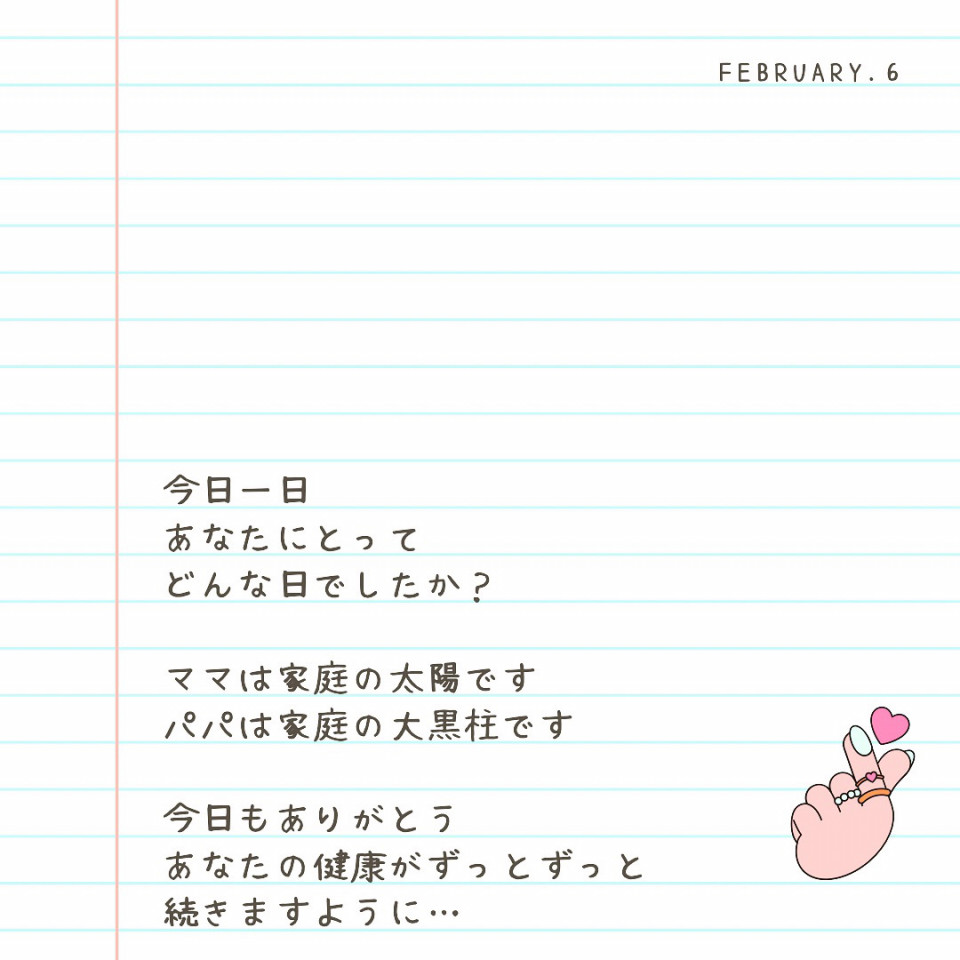 FEBRUARY. 6
今日一日
あなたにとって
どんな日でしたか？
ママは家庭の太陽です
パパは家庭の大黒柱です
今日もありがとう
あなたの健康がずっとずっと
続きますように…